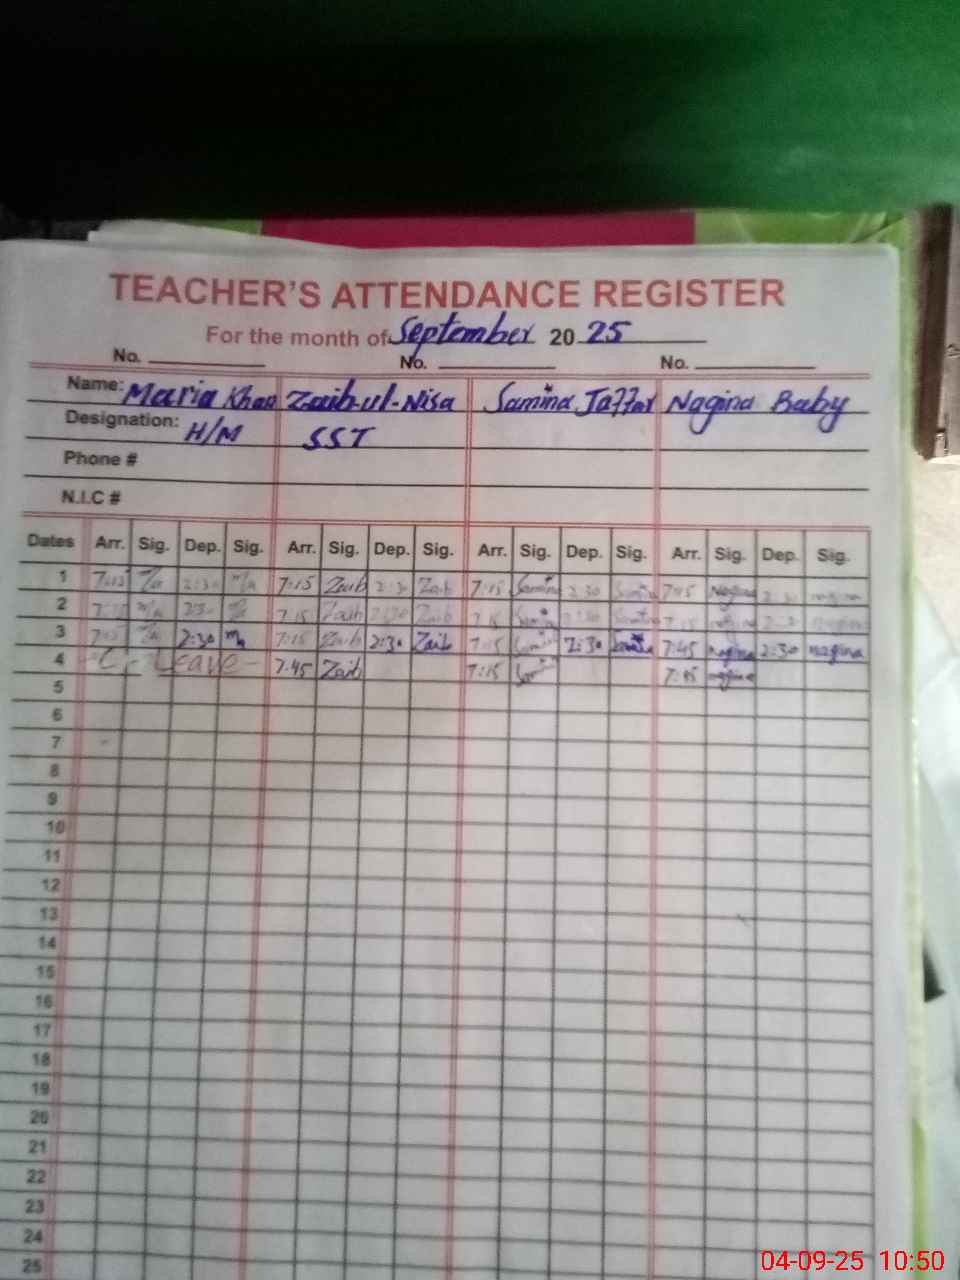 TEACHER'S ATTENDANCE REGISTER
For the month of September 20 25
No. No. No.
Name: Maria Khan Zaib-ul-Nisa Samina Jaffar Nagina Baby
Designation: H/M SST
Phone #
N.I.C #
Dates Arr. Sig. Dep. Sig. Arr. Sig. Dep. Sig. Arr. Sig. Dep. Sig. Arr. Sig. Dep. Sig.
1 7:15 2:30 7:15 Zaib 2:30 Zaib 7:15 Samina 2:30 Samina Nagina nagina
2 2:30 7:15 Zaib 2:30 Zaib 7:15 Samina
3 7:15 2:30 7:15 Zaib 2:30 Zaib 7:15 2:30 Samina 7:45 nagina 2:30 nagina
4 Leave 7:45 Zaib 7:15 7:45 nagina
5
6
7
8
9
10
11
12
13
14
15
16
17
18
19
20
21
22
23
24
25
04-09-25 10:50